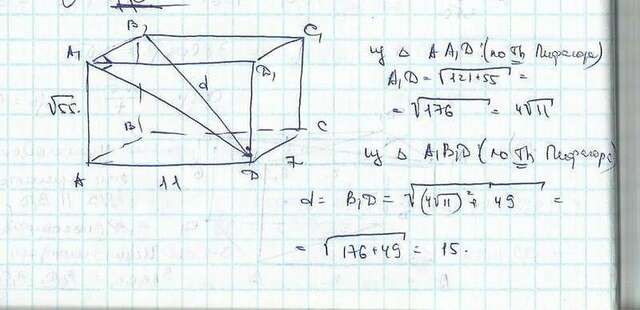 B₁ C₁
A₁ D₁
d
√55.
B C
7
A 11 D
из Δ AA₁D: (по Th Пифагора)
A₁D = √121+55 =
= √176 = 4√11
из Δ A₁B₁D: (по Th Пифагора)
d = B₁D = √(4√11)² + 49 =
= √176+49 = 15.